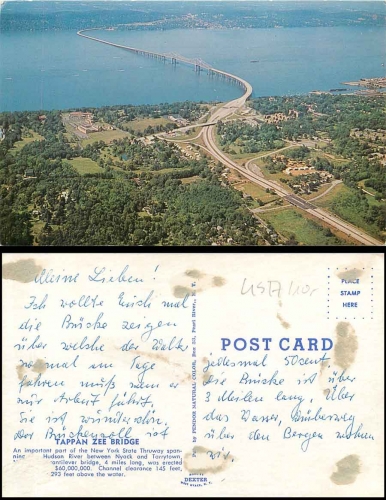 Meine Lieben!
Ich wollte Euch mal
die Brücke zeigen
über welche der Walter
2 mal am Tage
fahren muß wenn er
zur Arbeit fährt.
Sie ist wunderschön.
Der Brückenzoll ist
TAPPAN ZEE BRIDGE
An important part of the New York State Thruway span-
ning Hudson River between Nyack and Tarrytown,
cantilever bridge, 4 miles long, was erected
$60,000,000. Channel clearance 145 feet,
293 feet above the water.
Pub. by PENDOR NATURAL COLOR, Box 311, Pearl River, N. Y.
DEXTER
USA/10,-
PLACE
STAMP
HERE
POST CARD
jedesmal 50 cent.
Die Brücke ist über
3 Meilen lang, über
das Wasser,
über den Bergen wohnen
wir.